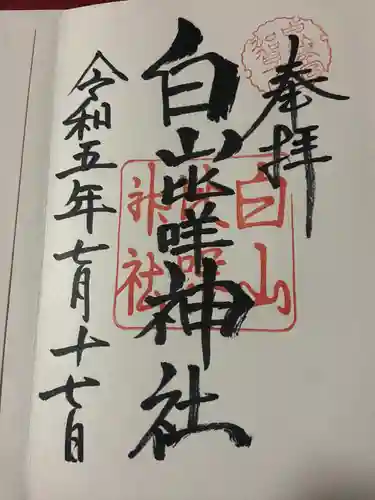 奉拝
白山比咩神社
令和五年七月十七日
白山
比咩
神社